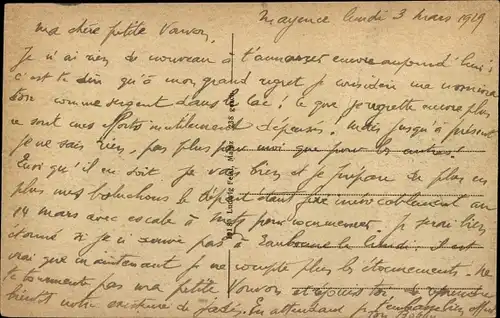 Mayence lundi 3 mars 1919
Ma chère petite
Je n'ai rien de nouveau à t'annoncer encore aujourd'hui :
c'est te dire qu'à mon grand regret je considère ma nomina
tion comme sergent dans le lac ! Ce que je regrette encore plus
ce sont mes efforts inutilement dépensés. Mais jusqu'à présent
je ne sais rien, pas plus pour moi que pour les autres !
Quoi qu'il en soit je vais bien et je prépare de plus en
plus mes le départ étant fixé irrévocablement au
14 mars avec escale à Metz pour commencer. Je serai bien
étonné si je suis pas à le lundi. Il est
vrai que maintenant je ne compte plus les étonnements. Ne
te tourmente pas ma petite et
bientôt notre de jadis. En attendant je t'embrasse bien
Ludwig Feist, Mainz